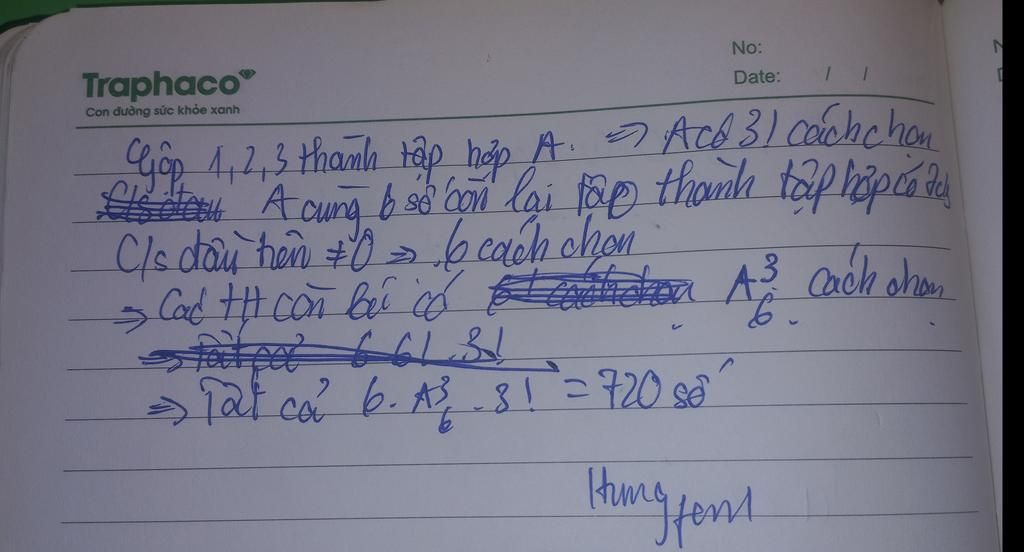 No:
Date: / /
Traphaco
Con đường sức khỏe xanh
Gộp 1, 2, 3 thành tập hợp A. => A có 3! cách chọn
A cùng 6 số còn lại tập thành tập hợp có 7 c/s
C/s đầu tiên ≠ 0 => 6 cách chọn
=> Các TH còn lại có A³₆ cách chọn
=> Tất cả 6 6! . 3!
=> Tất cả 6 . A³₆ . 3! = 720 số